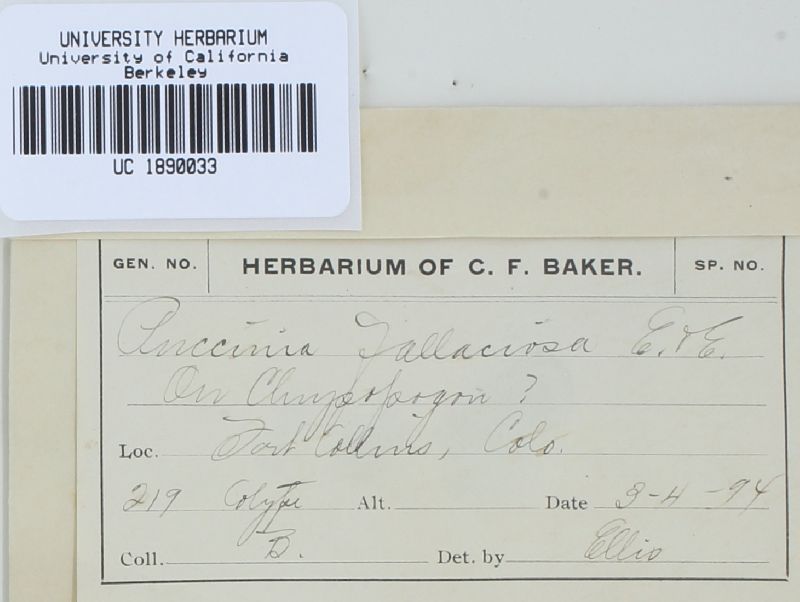 UNIVERSITY HERBARIUM
University of California
Berkeley
UC 1890033
GEN. NO. HERBARIUM OF C. F. BAKER. SP. NO.
Puccinia fallaciosa E. & E.
On Chrysopogon ?
Loc. Fort Collins, Colo.
219 Cotype Alt. Date 3-4-94
Coll. B. Det. by Ellis